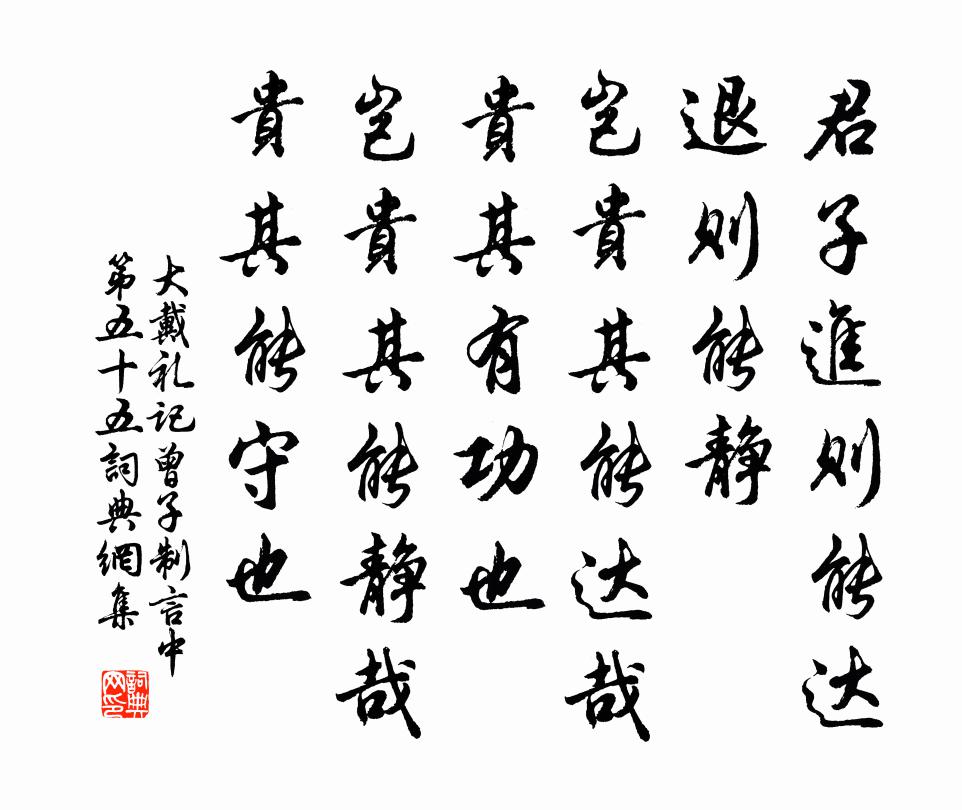 君子進則能达
退則能静
豈貴其能达哉
貴其有功也
豈貴其能静哉
貴其能守也
大戴礼記曾子制言中
第五十五詞典網集
詞典
网印